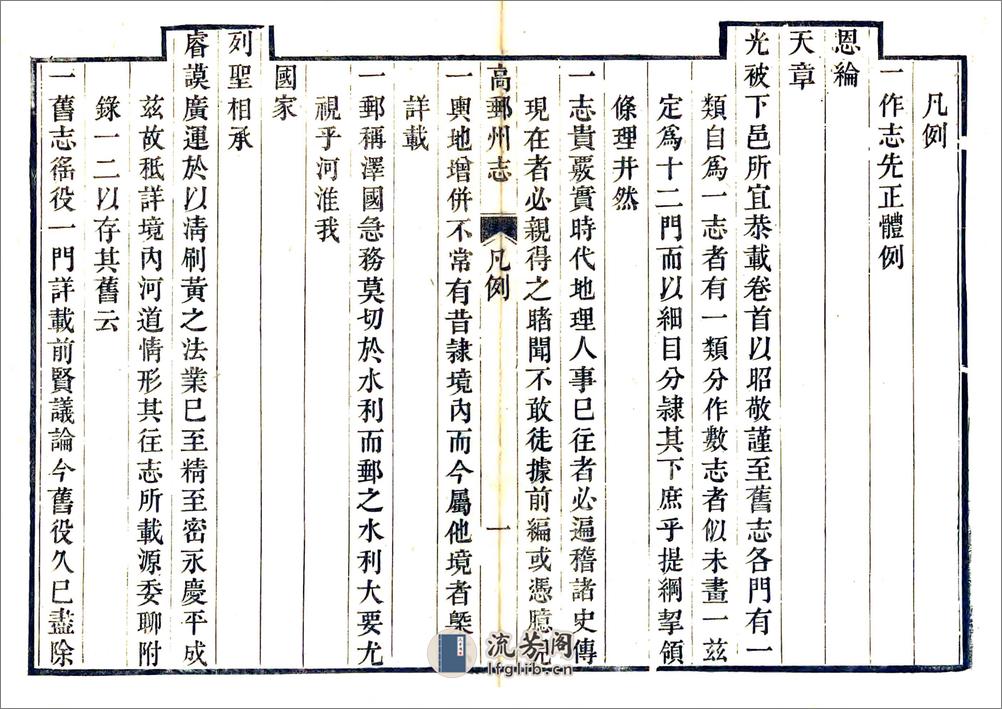 凡例
一作志先正體例
恩綸
天章
光被下邑所宜恭載卷首以昭敬謹至舊志各門有一
類自爲一志者有一類分作數志者似未畫一茲
定爲十二門而以細目分隸其下庶乎提綱挈領
條理井然
一志貴覈實時代地理人事已往者必遍稽諸史傳
現在者必親得之睹聞不敢徒據前編或憑臆見
高郵州志 凡例 一
一輿地增併不常有昔隸境內而今屬他境者槩
詳載
一郵稱澤國急務莫切於水利而郵之水利大要尤
視乎河淮我
國家
列聖相承
睿謨廣運於以清刷黃之法業已至精至密永慶平成
茲故秪詳境內河道情形其往志所載源委聊附
錄一二以存其舊云
一舊志徭役一門詳載前賢議論今舊役久已盡除
流芳閣
lfglib.cn